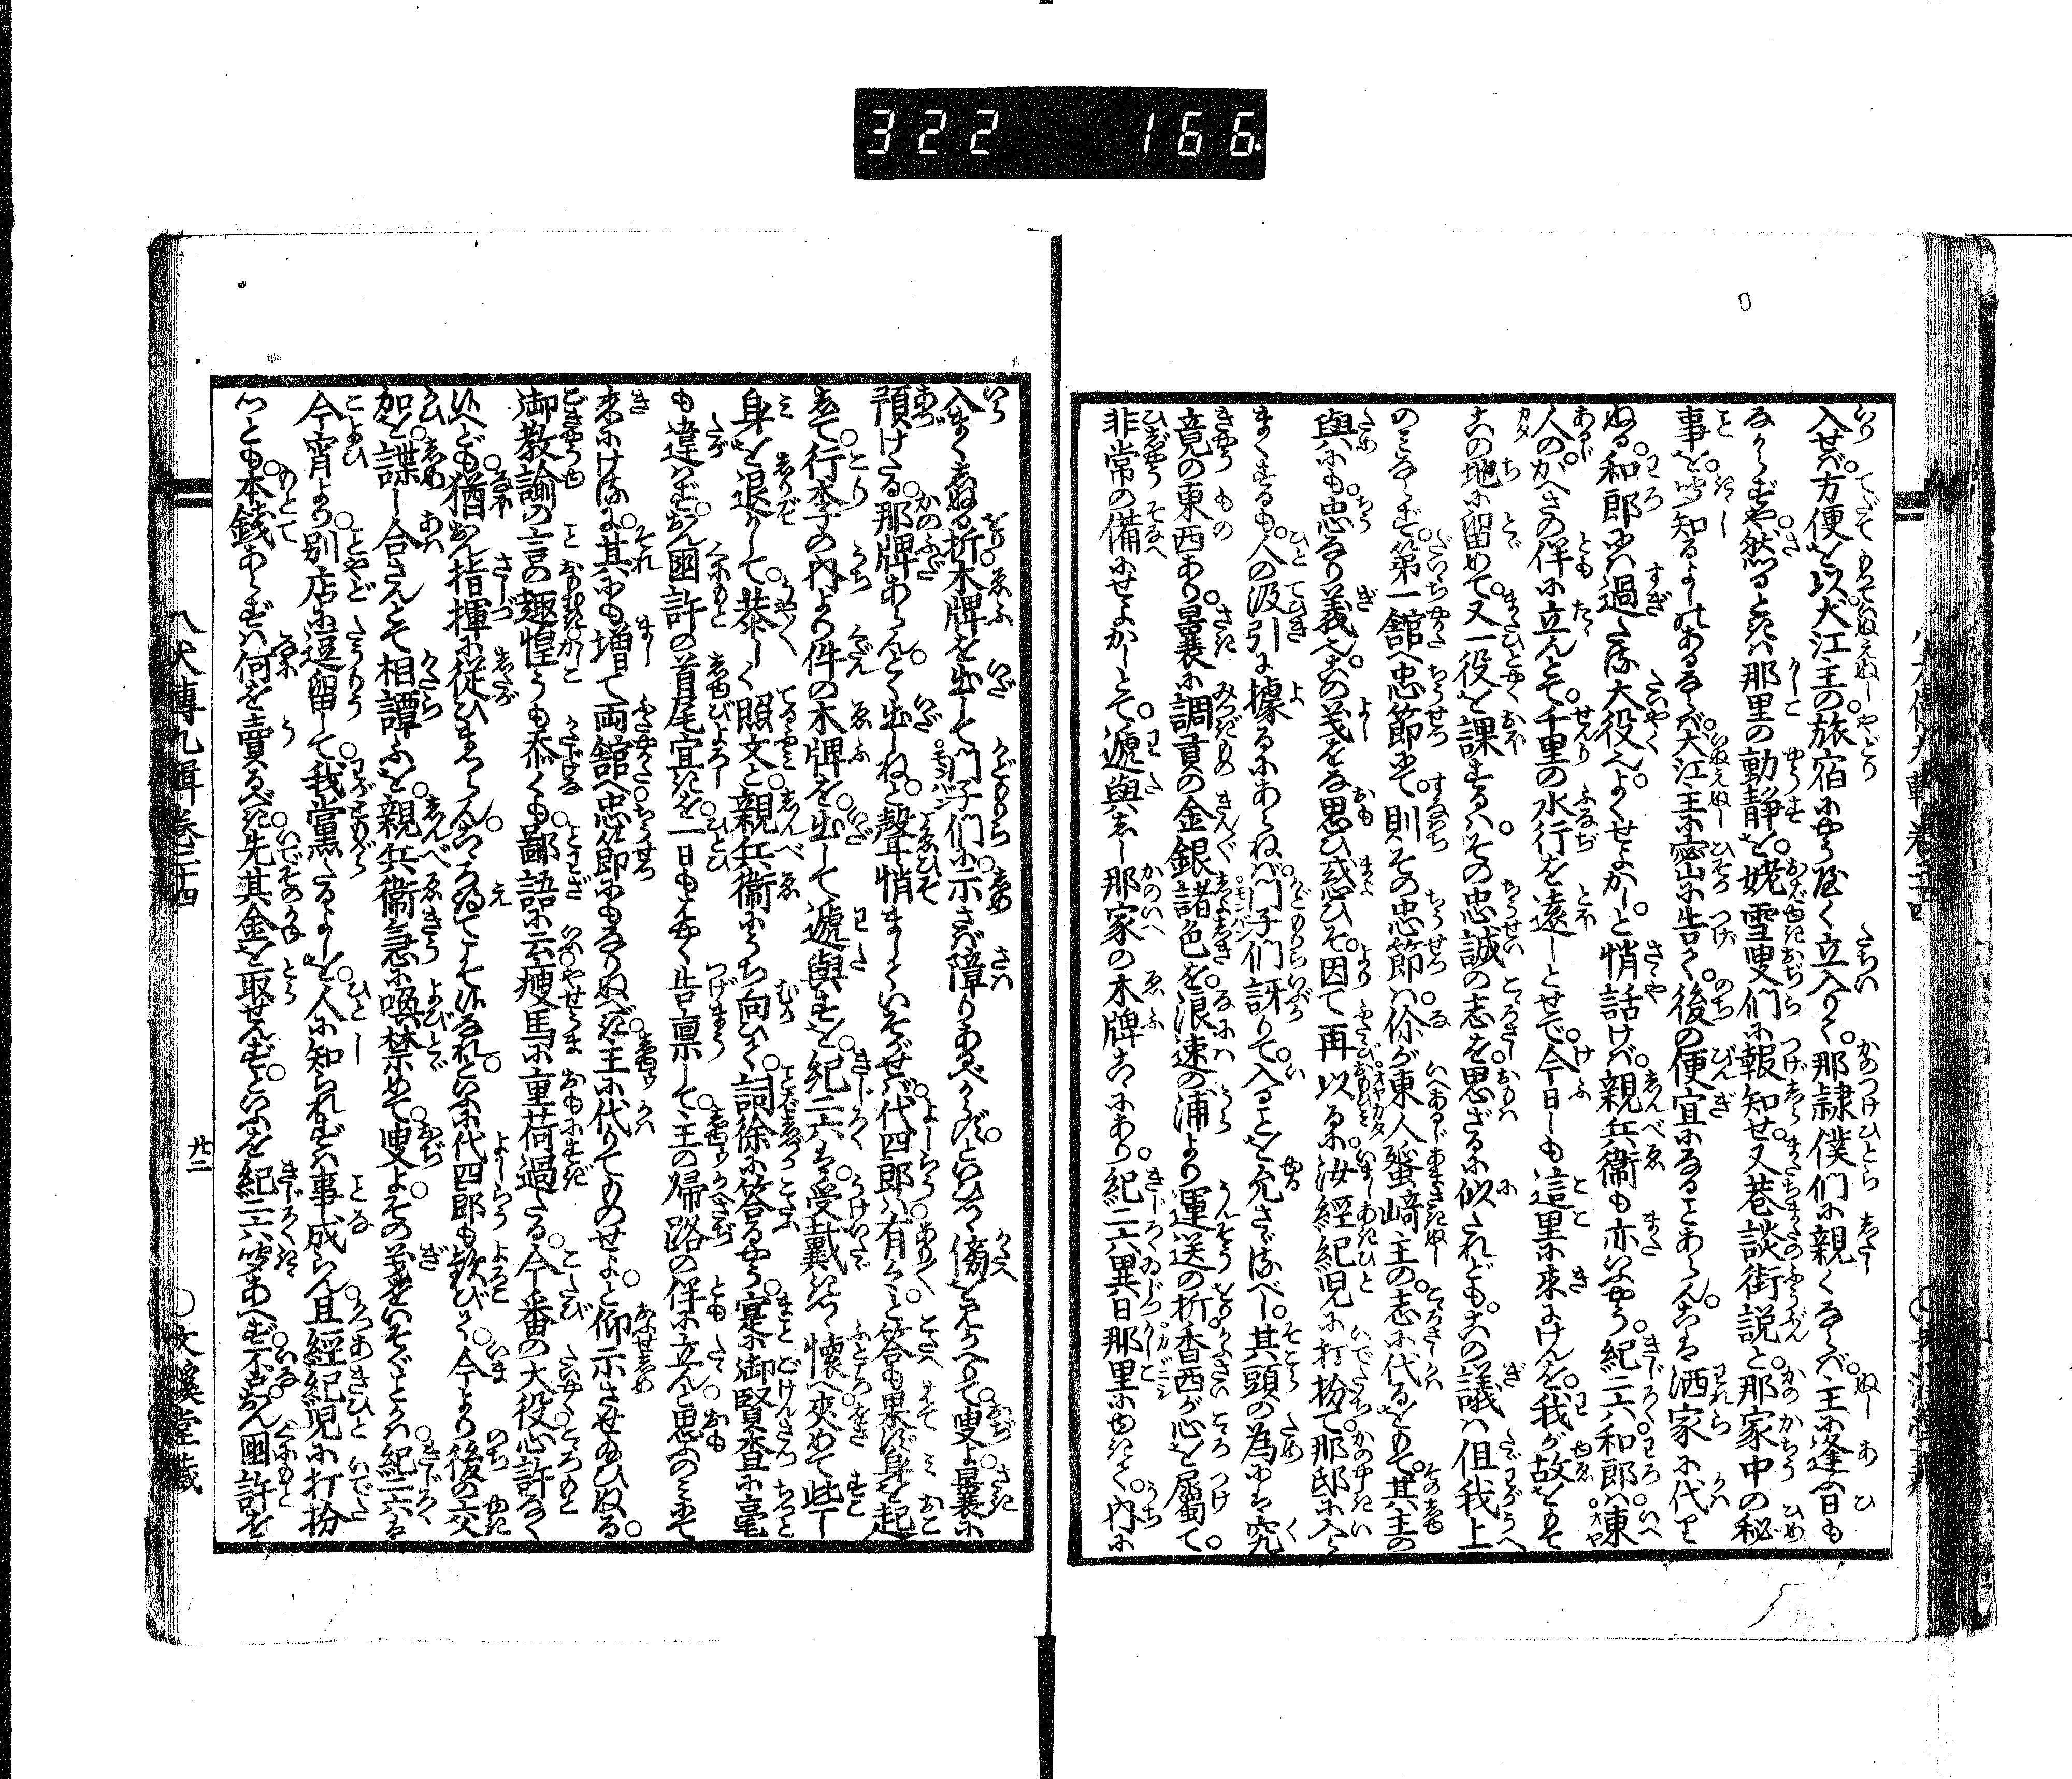 322 166
入せバ方便を以犬江主の旅宿に
立入りて那隷僕們に親くならバ主に逢ふ日も
ならずや然るときハ那里の動静を姥雪叟們に報知せ又巷談街説と那家中の秘
事を知るよしあるならバ犬江主に密に告て後の便宜になることあらんこは洒家に代り
ぬる和郎にハ過たる大役なりよくせよかしと悄話けバ親兵衛も亦いふやう紀二六和郎ハ東
人のかへさの伴に立んとて千里の水行を遠しとせで今日しも這里に来にけんを我が故をもて
この地に留めて又一役を課するハその忠誠の志を思ざるに似たれどもこの議ハ但我上
のみならず第一館へ忠節にて則その忠節ハ你が東人蜑崎主の志に代るをもて其主の
与にも忠なり義なりこの義をな思ひ惑ひそ因て再以るに汝経紀児に打扮て那邸に入ら
まくするも人の汲引に據るにあらねバ門子們訝りて入ることを允さゞるべし其頭の為にハ究
竟の東西あり曩裏に調貢の金銀諸色を浪速の浦より運送の折香西が心を属て
非常の備にせよかしとて逓與せし那家の木牌こゝにあり紀二六異日那里にゆきて内に
入まくする折木牌を出して門子們に示さバ障りあるべからずといひつゝ傍を見かへりて叟よ曩裏に
預けたる那牌あらんとく出しねと聲悄ましていそがせバ代四郎ハ有りと答も果ず身を起
して行李の内より件の木牌を出して逓與すを紀二六は受戴きつゝ懐へ夾めて些し
身を退して恭しく照文と親兵衛にうち向ひて詞徐に答るやう寔に御賢査に毫
も違ハずおん国許の首尾宜きを一日もはやく告稟して主の帰路の伴に立んと思ふのみにて
来にけるに其にも増て両館へ忠節にもなりぬべき主に代りてものせよと仰示させ給ひぬる
御教諭の言の趣惶うも忝くも鄙語に云痩馬に重荷過たる今番の大役心許なく
候へども猶おん指揮に従ひまゐらんこゝろ得てこそ候なれといふに代四郎も歓びて今より後の交
加を諜し合さんとて相譚ふを親兵衛急に喚禁めて叟よその義をいそぐとも紀二六は
今宵より別店に逗留して我黨たるよしを人に知られずハ事成らん且経紀児に打扮
つとも本銭あらずハ何を賣るべき先其金を取せんずといふを紀二六聞あへず不おん国許を
八犬傳九輯巻二十四
廿二
○文溪堂藏